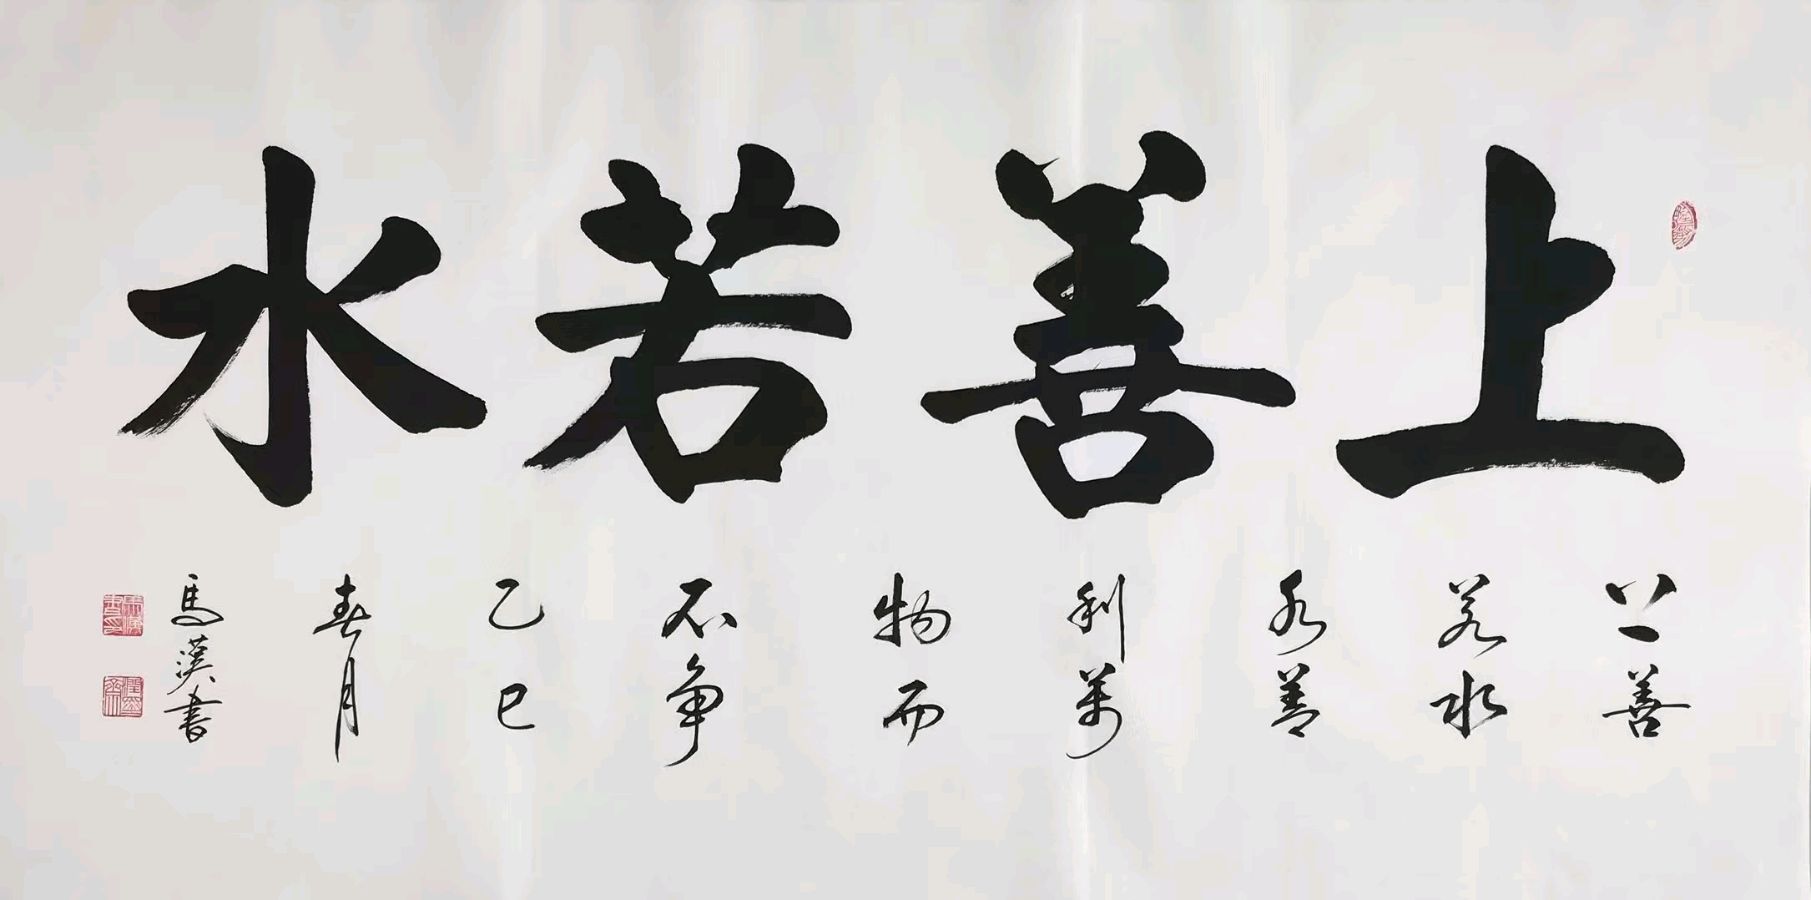 上善若水
上善
若水
水善
利萬
物而
不争
乙巳
春月
馬漢書